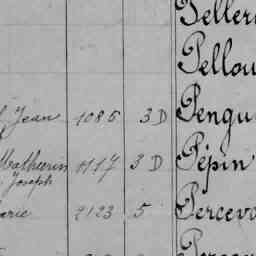 Peller
Pellou
Jean 1085 3 D Pengu
Mathurin 1117 3 D Pépin
Joseph
arie 2123 5 Percevo